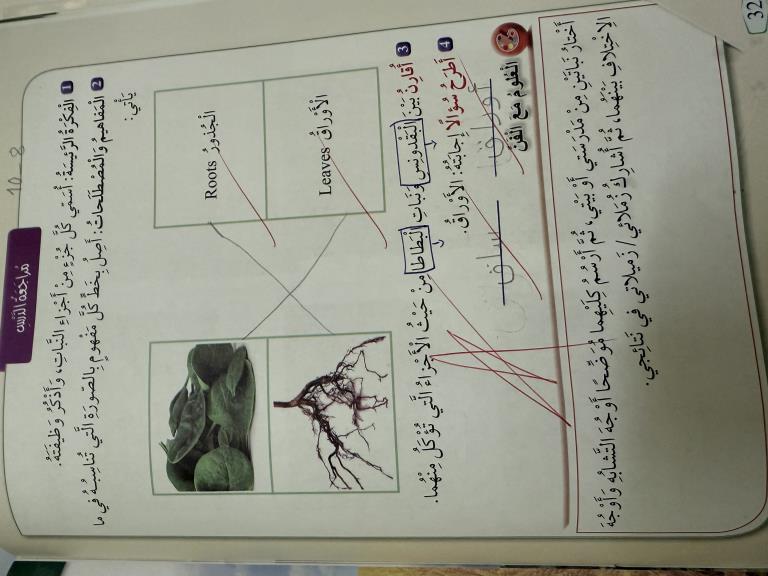 10 - 8
مُراجَعَةُ الدَّرْسِ
1 الْفِكْرَةُ الرَّئِيسَةُ: أُسَمّي كُلَّ جُزْءٍ مِنْ أَجْزاءِ النَّباتِ، وَأَذْكُرُ وَظيفَتَهُ.
2 الْمَفاهيمُ وَالْمُصْطَلَحاتُ: أَصِلُ بِخَطٍّ كُلَّ مَفْهومٍ بِالصّورَةِ الَّتي تُناسِبُهُ في ما
يَأْتي:
الْجُذورُ Roots
الْأَوْراقُ Leaves
3 أُقارِنُ بَيْنَ الْبَقْدونِسِ وَنَباتِ الْبَطاطا مِنْ حَيْثُ الْأَجْزاءُ الَّتي تُؤْكَلُ مِنْهُما.
4 أَطْرَحُ سُؤالًا إِجابَتُهُ: الْأَوْراقُ.
أوراق ساق
الْعُلومُ مَعَ الْفَنِّ
أَخْتارُ نَباتَيْنِ مِنْ مَدْرَسَتي أَوْ بَيْتي، ثُمَّ أَرْسُمُ كِلَيْهِما مُوَضِّحًا أَوْجُهَ التَّشابُهِ وَأَوْجُهَ
الِاخْتِلافِ بَيْنَهُما، ثُمَّ أُشارِكُ زُمَلائي/ زَميلاتي في نَتائِجي.
32